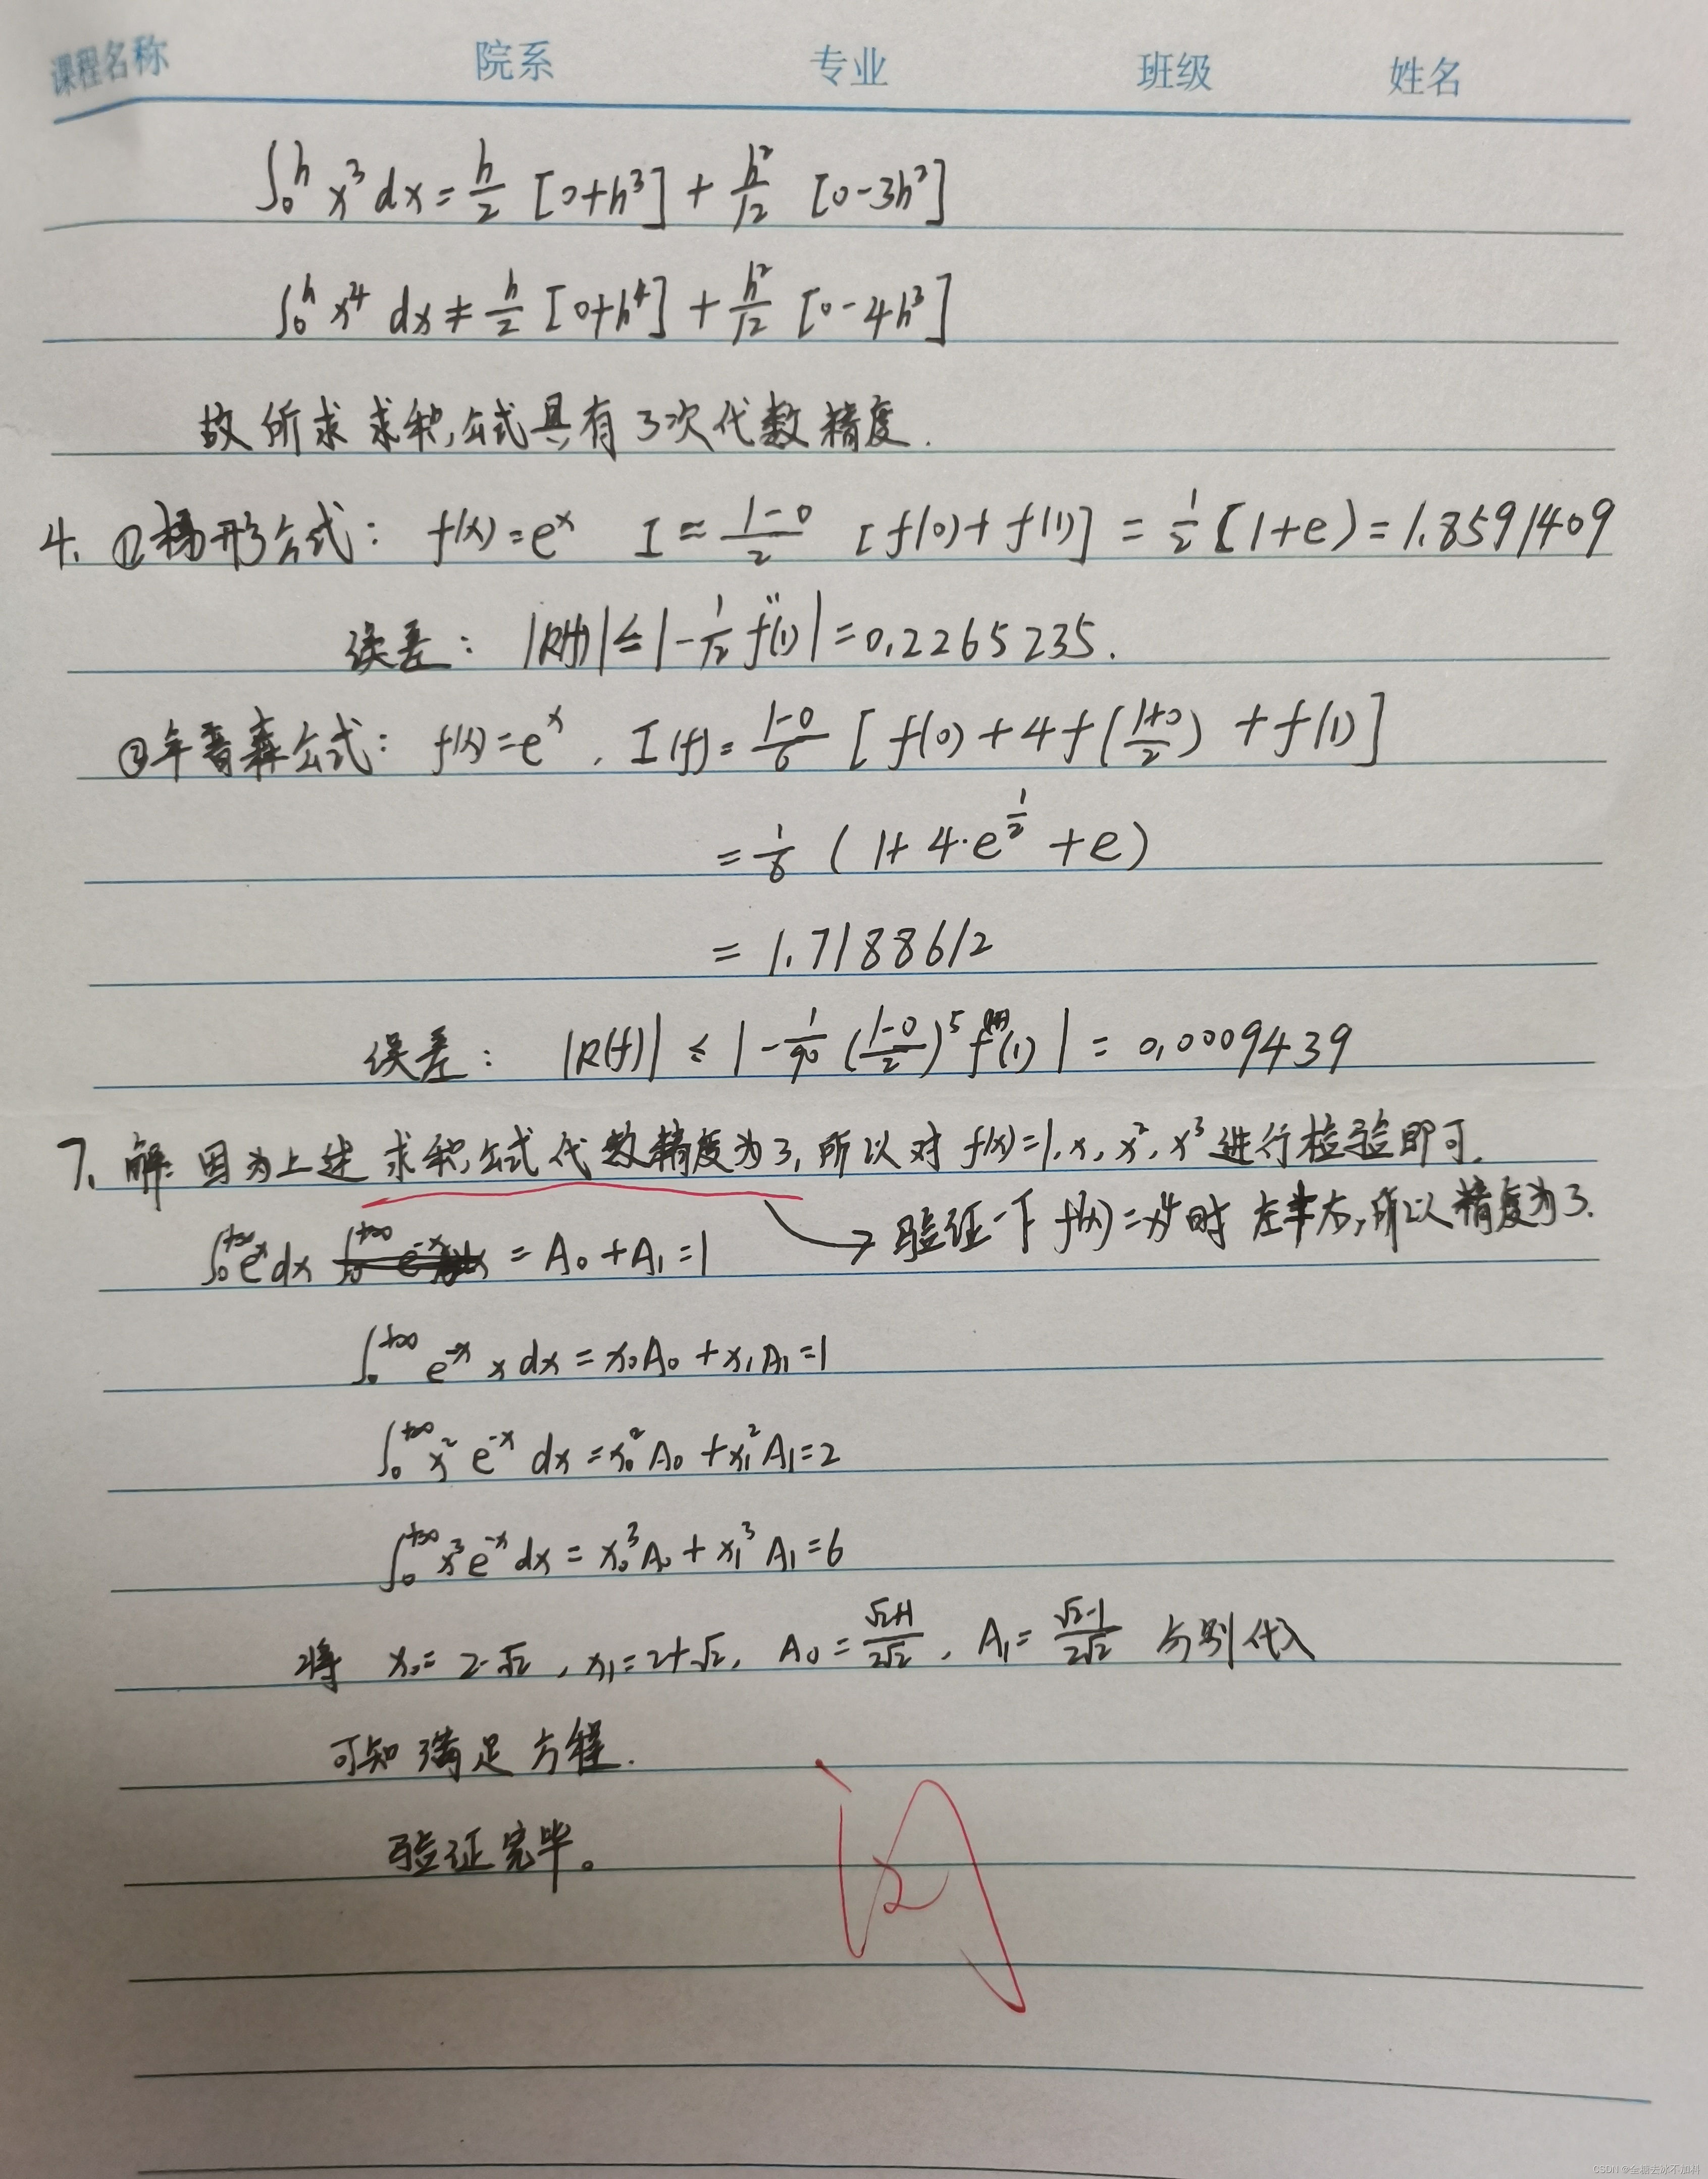 课程名称 院系 专业 班级 姓名
∫₀ʰ x³ dx = h/2 [0+h³] + h²/12 [0-3h²]
∫₀ʰ x⁴ dx ≠ h/2 [0+h⁴] + h²/12 [0-4h³]
故所求求积公式具有3次代数精度.
4. ①梯形公式: f(x)=eˣ I≈ (1-0)/2 [f(0)+f(1)] = 1/2 [1+e) = 1.8591409
误差: |R(f)| ≤ |-1/12 f''(1)| = 0.2265235.
②辛普森公式: f(x)=eˣ, I(f)= (1-0)/6 [f(0)+4f((1+0)/2)+f(1)]
= 1/6 (1+4·e^(1/2)+e)
= 1.7188612
误差: |R(f)| ≤ |-1/90 ((1-0)/2)⁵ f⁽⁴⁾(1)| = 0.0009439
7. 解: 因为上述求积公式代数精度为3, 所以对 f(x)=1, x, x², x³ 进行检验即可.
验证一下 f(x)=x⁴时 左≠右, 所以精度为3.
∫₀^(+∞) e⁻ˣ dx = A₀+A₁=1
∫₀^(+∞) e⁻ˣ x dx = x₀A₀+x₁A₁=1
∫₀^(+∞) x² e⁻ˣ dx = x₀²A₀+x₁²A₁=2
∫₀^(+∞) x³ e⁻ˣ dx = x₀³A₀+x₁³A₁=6
将 x₀=2-√2, x₁=2+√2, A₀=(√2+1)/(2√2), A₁=(√2-1)/(2√2) 分别代入
可知满足方程.
验证完毕。
CSDN @全糖去冰不加料